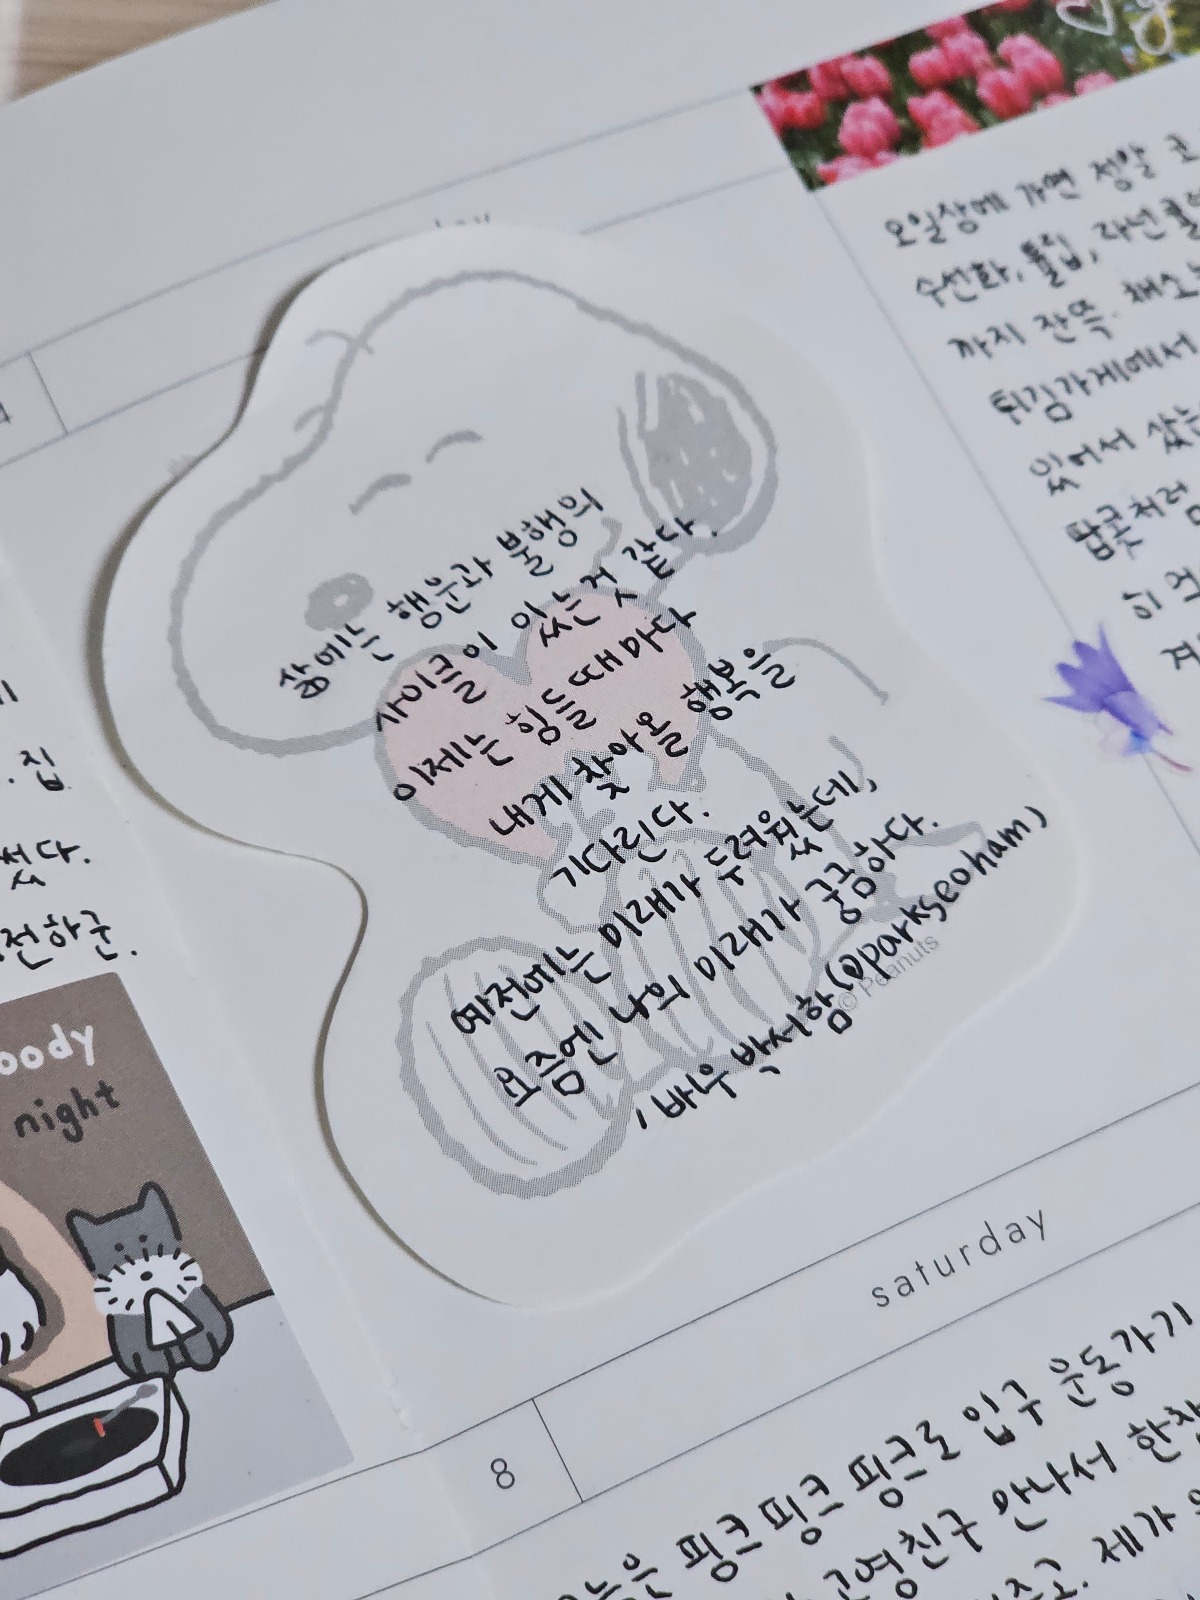 day
오일장에 가면 정말
수선화, 튤립,
까지 잔뜩. 채소
튀김가게에서
있어서 샀는
팝콘처럼
히
삶에는 행운과 불행의
사이클이 있는 것 같다.
이제는 힘들 때마다
내게 찾아올 행복을
기다린다.
예전에는 미래가 두려웠는데,
요즘엔 나의 미래가 궁금하다.
(배우 박서함 (@parkseoham)
© Peanuts
집
썼다.
전하군.
night
saturday
8
핑크핑크 핑크로 입구 운동가기
고영친구 만나서 한참
제가